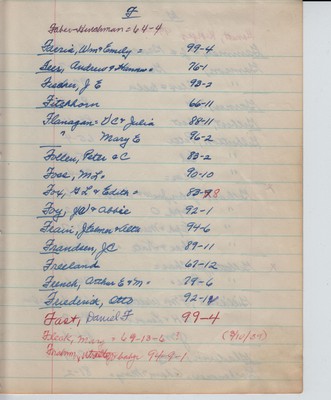 F
Faber-Hinchman = 64-4
Faerie, Wm & Emily = 99-4
Feer, Andrew & Hanna = 76-1
Fischer, J E 93-2
Fiterhorn 66-11
Flanagan = V C & Julia 88-11
" Mary E 96-2
Follen, Peter & C 83-2
Foss, M L = 90-10
Fox, G L & Edith = 83-8
Foy, J W & Abbie 92-1
Fravi, J Elmer & Etta 94-6
Frandsen, J C 89-11
Freeland 67-12
French, Arthur E & M = 79-6
Frederick, Otto 92-12
Fast, Daniel F 99-4
Flook, Mary = 69-10-6 ?
baby 94-9-1